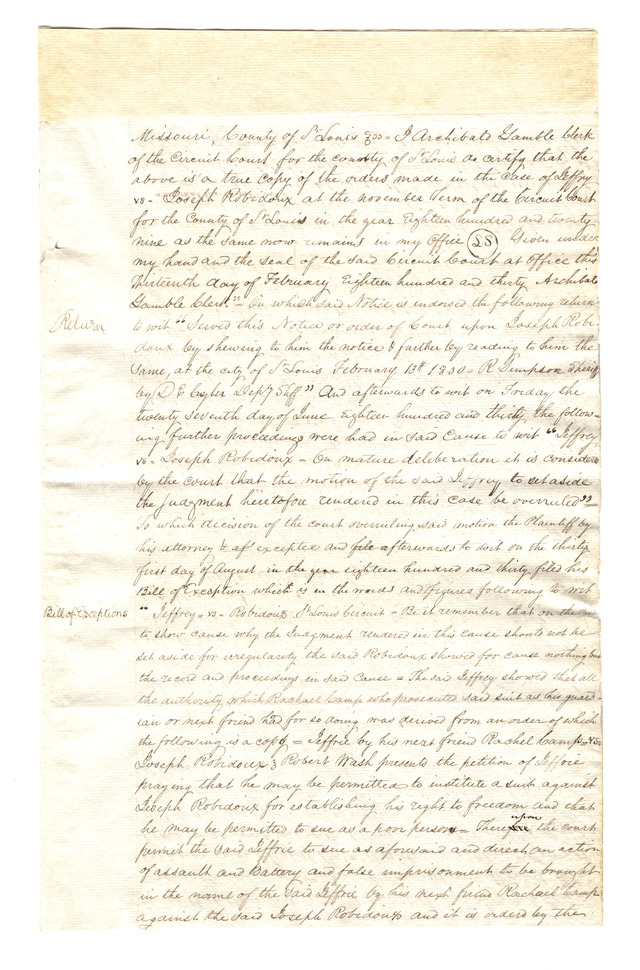 Missouri, County of St Louis } ss = I Archibald Gamble Clerk
of the Circuit Court for the county of St Louis do certify that the
above is a true copy of the orders made in the case of Jeffrey
vs = Joseph Robidoux at the november Term of the Circuit Court
for the County of St Louis in the year Eighteen hundred and twenty
nine as the same now remains in my Office (LS) Given under
my hand and the seal of the said Circuit Court at office this
thirteenth day of February Eighteen hundred and thirty Archibald
Gamble Clerk" = On which said Notice is endorsed the following return
Return
to wit "Served this Notice or order of Court upon Joseph Robi-
doux by shewing to him the notice & further by reading to him the
same, at the city of St Louis February 13th 1830 = R Simpson Sheriff
by D E Cuyler Depy Shff" And afterwards to wit on Friday the
twenty seventh day of June Eighteen hundred and thirty the follow-
ing further proceedings were had in said Cause to wit "Jeffrey
vs = Joseph Robidoux = On mature deliberation it is considered
by the court that the motion of the said Jeffrey to set aside
the Judgment heretofore rendered in this case be overruled" =
To which decision of the court overruling said motion the Plaintiff by
his attorney excepted and afterwards to wit on the thirty
first day of August in the year eighteen hundred and thirty filed his
Bill of Exception which is in the words and figures following to wit
Bill of Exceptions
"Jeffrey = vs = Robidoux St Louis Circuit = Be it remember that on the
to show cause why the Judgment rendered in this cause should not be
set aside for irregularity the said Robidoux showed for cause nothing but
the record and proceedings in said cause = The said Jeffrey showed that all
the authority which Rachael Camp who prosecuted said suit as his guard-
ian or next friend had for so doing was derived from an order of which
the following is a copy = Jeffrie by his next friend Rachel Camp = vs =
Joseph Robidoux } Robert Wash presents the petition of Jeffrie
praying that he may be permitted to institute a suit against
Joseph Robidoux for establishing his right to freedom and that
he may be permitted to sue as a poor person = Thereupon the court
permit the said Jeffrie to sue as aforesaid and direct an action
of assault and Battery and false imprisonment to be brought
in the name of the said Jeffrie by his next friend Rachael Camp
against the said Joseph Robidoux and it is orderd by the